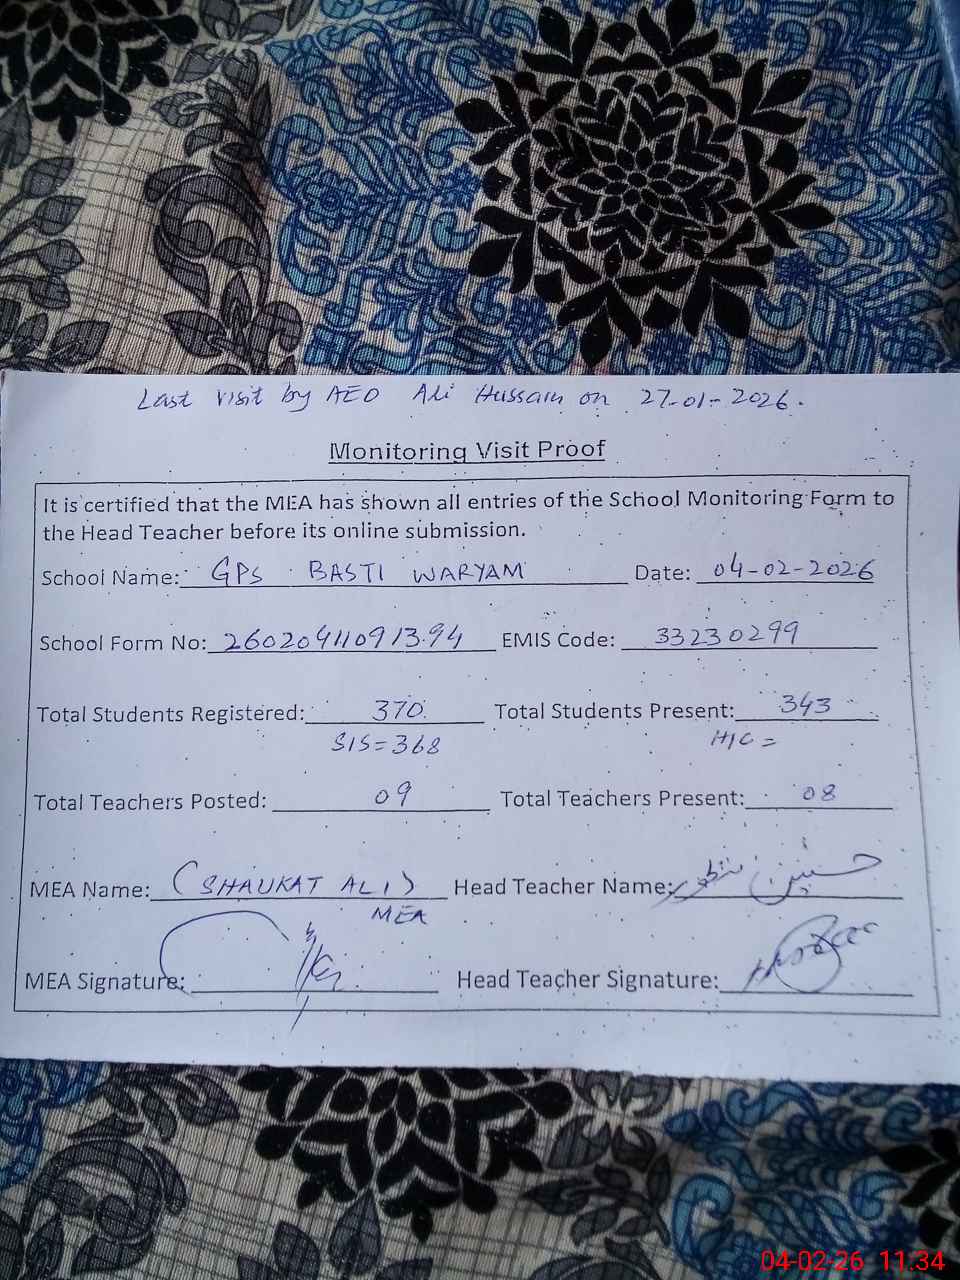 Last visit by AEO Ali Hussain on 27-01-2026.
Monitoring Visit Proof
It is certified that the MEA has shown all entries of the School Monitoring Form to
the Head Teacher before its online submission.
School Name: GPS BASTI WARYAM Date: 04-02-2026
School Form No: 26020411091394 EMIS Code: 33230299
Total Students Registered: 370 Total Students Present: 343
SIS=368 H/C =
Total Teachers Posted: 09 Total Teachers Present: 08
MEA Name: (SHAUKAT ALI) Head Teacher Name:
MEA
MEA Signature: Head Teacher Signature:
04-02-26 11.34